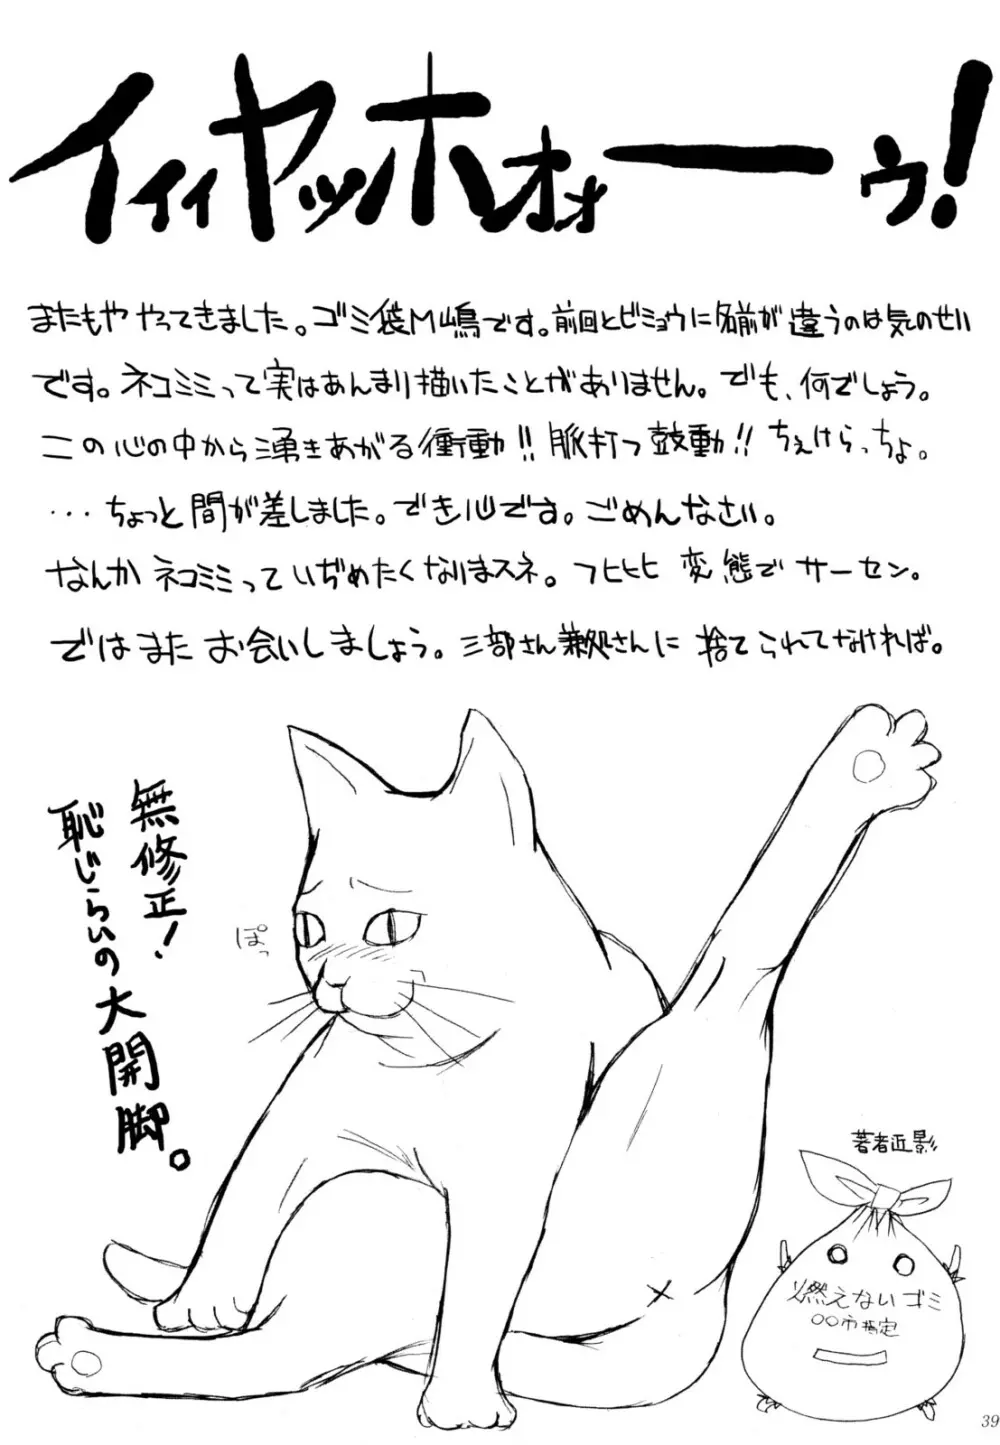 イィィヤッホォォーーゥ!
またもや やってきました。ゴミ袋M嶋です。前回とビミョウに名前が違うのは気のせい
です。ネコミミって実はあんまり描いたことがありません。でも、何でしょう。
この心の中から湧きあがる衝動!!脈打つ鼓動!!ちぇけらっちょ。
...ちょっと間が差しました。でき心です。ごめんなさい。
なんかネコミミっていぢめたくなりまスネ。フヒヒヒ 変態でサーセン。
ではまた お会いしましょう。三部さん兼処さんに 捨てられてなければ。
無修正!
恥じらいの大開脚。
ぽっ
著者近影
燃えないゴミ
〇〇市指定
39